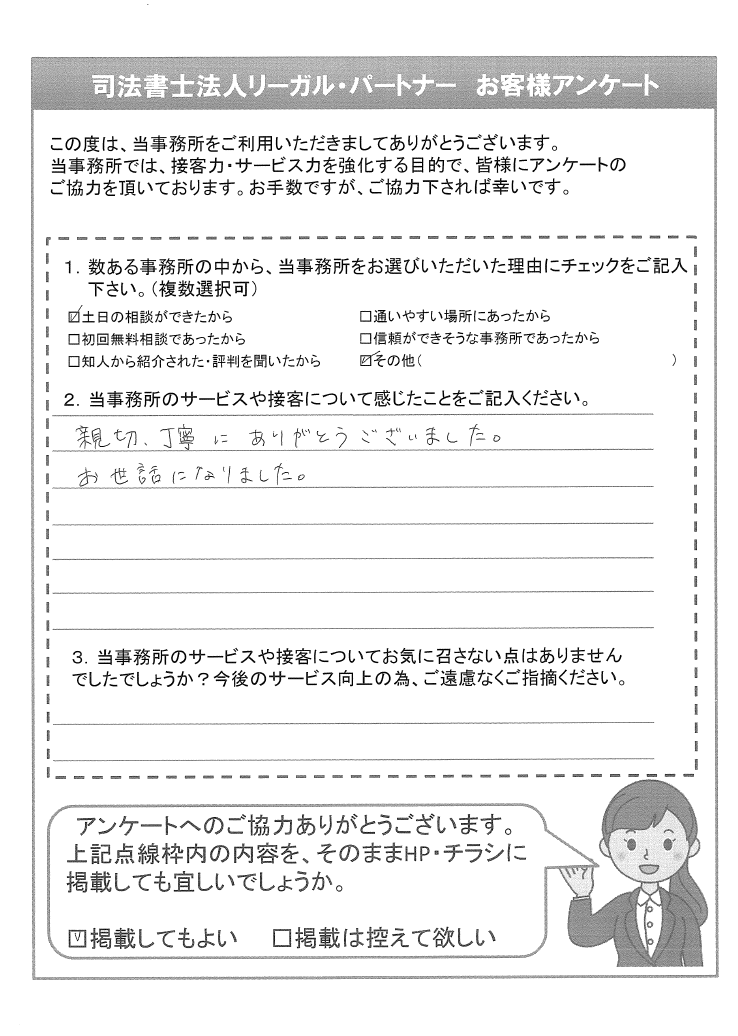 司法書士法人リーガル・パートナー　お客様アンケート
この度は、当事務所をご利用いただきましてありがとうございます。
当事務所では、接客力・サービス力を強化する目的で、皆様にアンケートの
ご協力を頂いております。お手数ですが、ご協力下されば幸いです。
1. 数ある事務所の中から、当事務所をお選びいただいた理由にチェックをご記入
下さい。（複数選択可）
☑土日の相談ができたから　□通いやすい場所にあったから
□初回無料相談であったから　□信頼ができそうな事務所であったから
□知人から紹介された・評判を聞いたから　☑その他（　　　）
2. 当事務所のサービスや接客について感じたことをご記入ください。
親切、丁寧に ありがとうございました。
お世話になりました。
3. 当事務所のサービスや接客についてお気に召さない点はありません
でしたでしょうか？今後のサービス向上の為、ご遠慮なくご指摘ください。
アンケートへのご協力ありがとうございます。
上記点線枠内の内容を、そのままHP・チラシに
掲載しても宜しいでしょうか。
☑掲載してもよい　□掲載は控えて欲しい